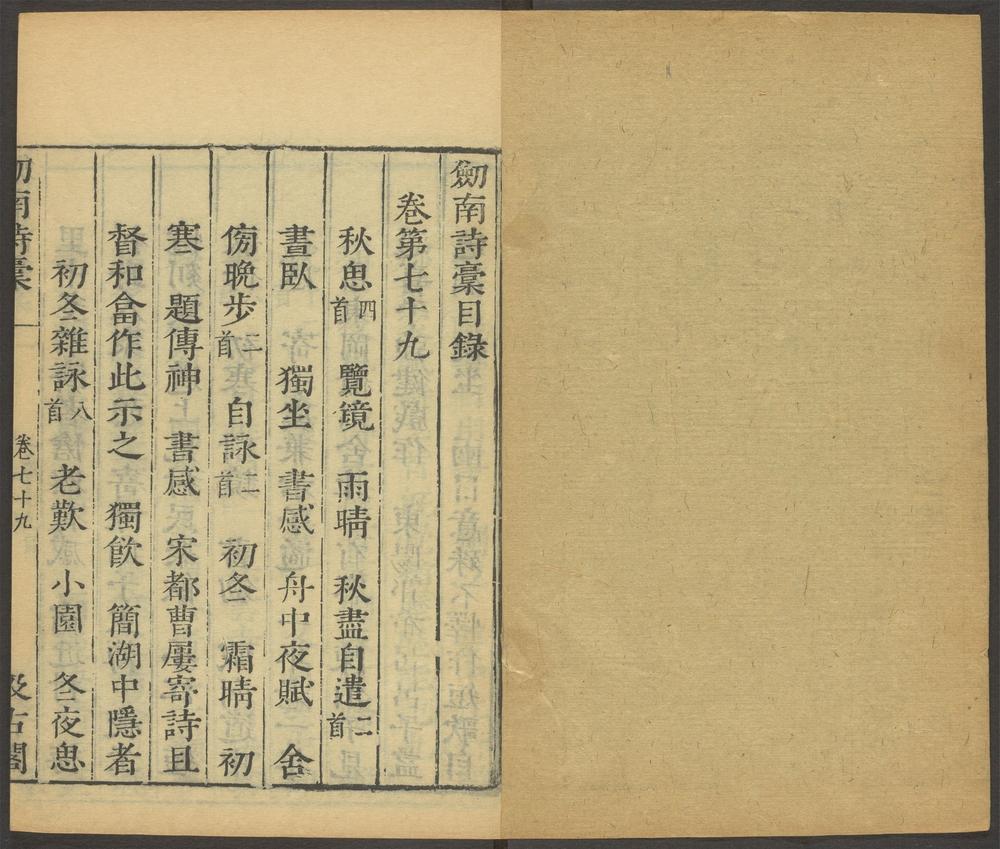 劒南詩稾目錄
卷第七十九
秋思四首 覽鏡 雨晴 秋盡自遣二首
晝臥 獨坐 書感 舟中夜賦 舍
傍晚步二首 自詠二首 初冬 霜晴 初
寒 題傳神 書感 宋都曹屢寄詩且
督和畣作此示之 獨飲 簡湖中隱者
初冬雜詠八首 老歎 小園 冬夜思
劒南詩稾 卷七十九 汲古閣